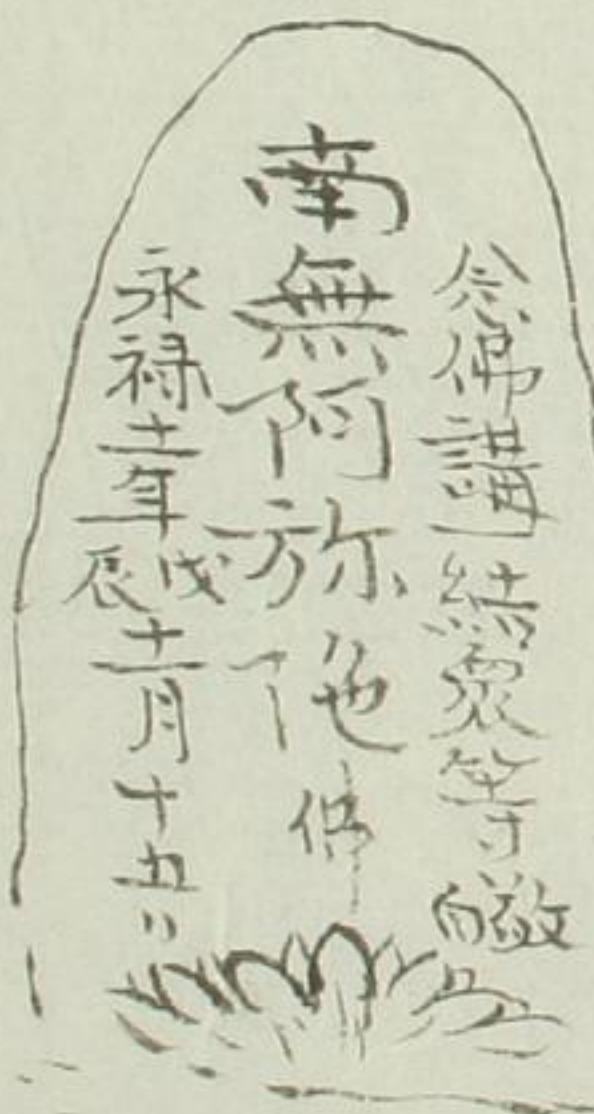 念佛講結衆等敬白
南無阿弥陀佛
永禄十一年戊辰十一月十五日